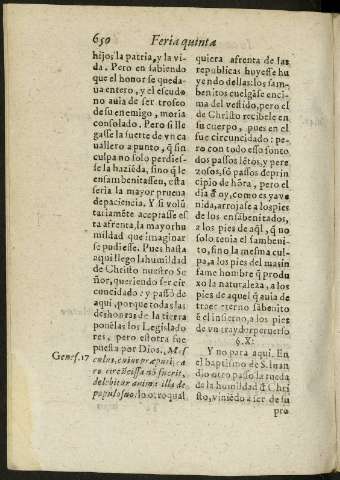 650 Feria quinta
hijos, la patria, y la vi-
da. Pero en sabiendo
que el honor se queda-
ua entero, y el escudo
no auia de ser trofeo
de su enemigo, moria
consolado. Pero si lle
gasse la suerte de vn ca
uallero a punto, q̃ sin
culpa no solo perdies-
se la haziẽda, sino q̃ le
ensambenitassen, esta
seria la mayor prueua
de paciencia. Y si volũ
tariamẽte aceptasse es
ta afrenta, la mayor hu
mildad que imaginar
se pudiesse. Pues hasta
aqui llego la humildad
de Christo nuestro Se
ñor, queriendo ser cir
cuncidado: y passò de
aqui, porque todas las
deshonras de la tierra
ponẽlas los Legislado
res, pero esta otra fue
puesta por Dios. Mas
culus, cuius præputij ca
ro circũcissa nõ fuerit,
delebitur anima illa de
populo suo: lo otro qual
Genes. 17
quiera afrenta de las
republicas huyesse hu
yendo dellas: los sam-
benitos cuelgãse enci-
ma del vestido, pero el
de Christo recibele en
su cuerpo, pues en el
fue circuncidado: pe-
ro con todo esso son to
dos passos lẽtos, y pere
zosos, sõ passos de prin
cipio de hora, pero el
dia õ oy, como es ya ve
nida, arrojale a los pies
de los ensãbenitados,
a los pies de aq̃l, q̃ no
solo tenia el sambeni-
to, sino la mesma cul-
pa, a los pies del mas in
fame hombre q̃ produ
xo la naturaleza, a los
pies de aquel q̃ auia de
traer eterno sambenito
ẽ el infierno, a los pies
de vn traydor peruerso
§. X.
Y no para aqui. En
el baptismo de S. Iuan
dio otro passo la rueda
de la humildad d̃ Chri
sto, viniẽdo a ser de su
pro